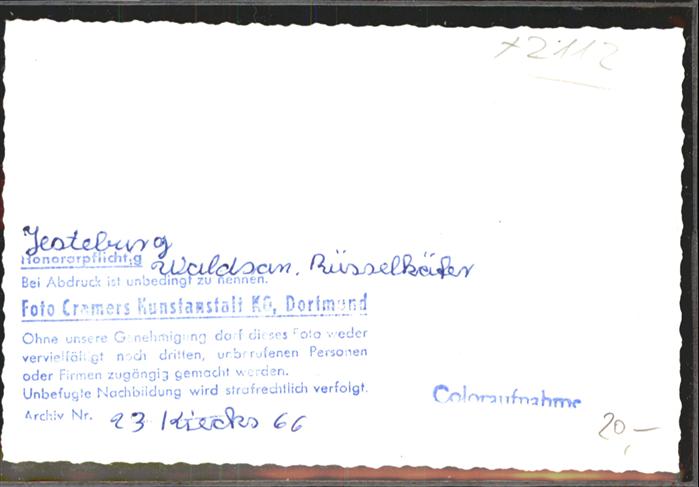 x2112
Jesteburg
Honorarpflichtig Waldsan. Rüsselkäfer
Bei Abdruck ist unbedingt zu nennen.
Foto Cramers Kunstanstalt KG, Dortmund
Ohne unsere Genehmigung darf dieses Foto weder
vervielfältigt noch dritten, unberufenen Personen
oder Firmen zugängig gemacht werden.
Unbefugte Nachbildung wird strafrechtlich verfolgt.
Archiv Nr. 23 66
Coloraufnahme
20,—